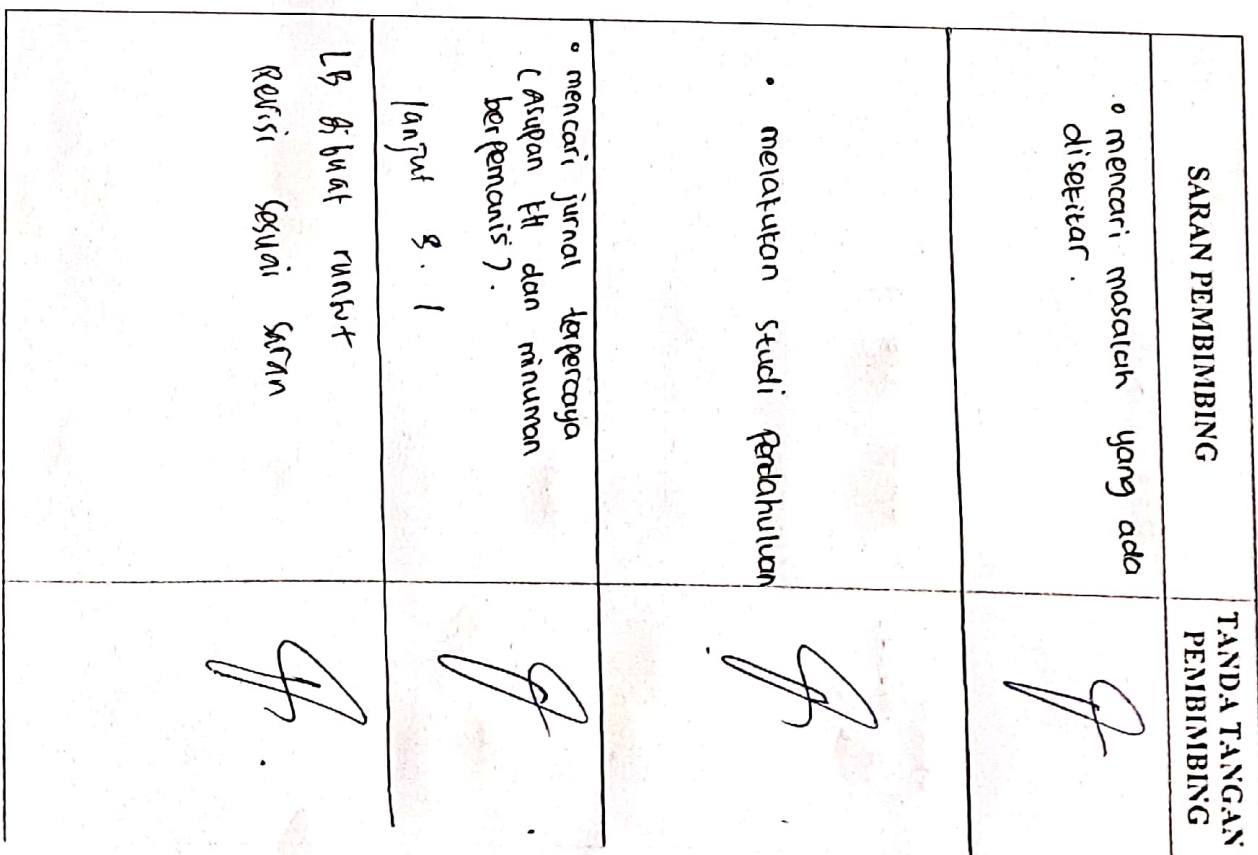 SARAN PEMBIMBING
TANDA TANGAN
PEMBIMBING
• mencari masalah yang ada
disekitar.
• melakukan studi Pendahuluan
• mencari jurnal terpercaya
(Asupan KH dan minuman
berpemanis).
lanjut B. 1
LB dibuat runtut
Revisi sesuai saran